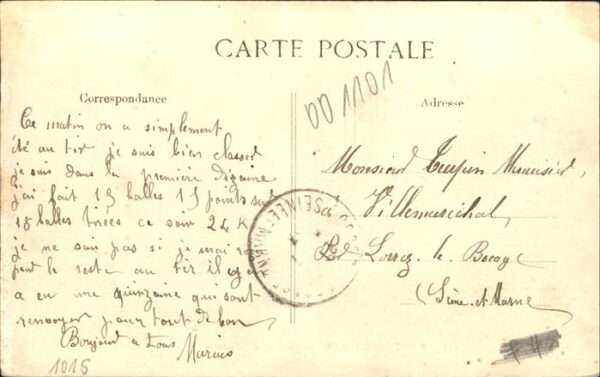 CARTE POSTALE
Correspondance
Ce matin on a simplement
été au tir je suis bien classé
je suis dans la première dizaine
j'ai fait 13 balles 15 points sur
18 balles tirées ce soir 24 K
je ne sais pas si je serai
pour le reste au tir il y en
a eu une quinzaine qui sont
renvoyés pour tout de bon
Bonjour à tous
1015
001101
Adresse
Monsieur Menuisier,
Villemaréchal,
Lorrez le Bocage
(Seine-et-Marne
SEINE-ET-MARNE